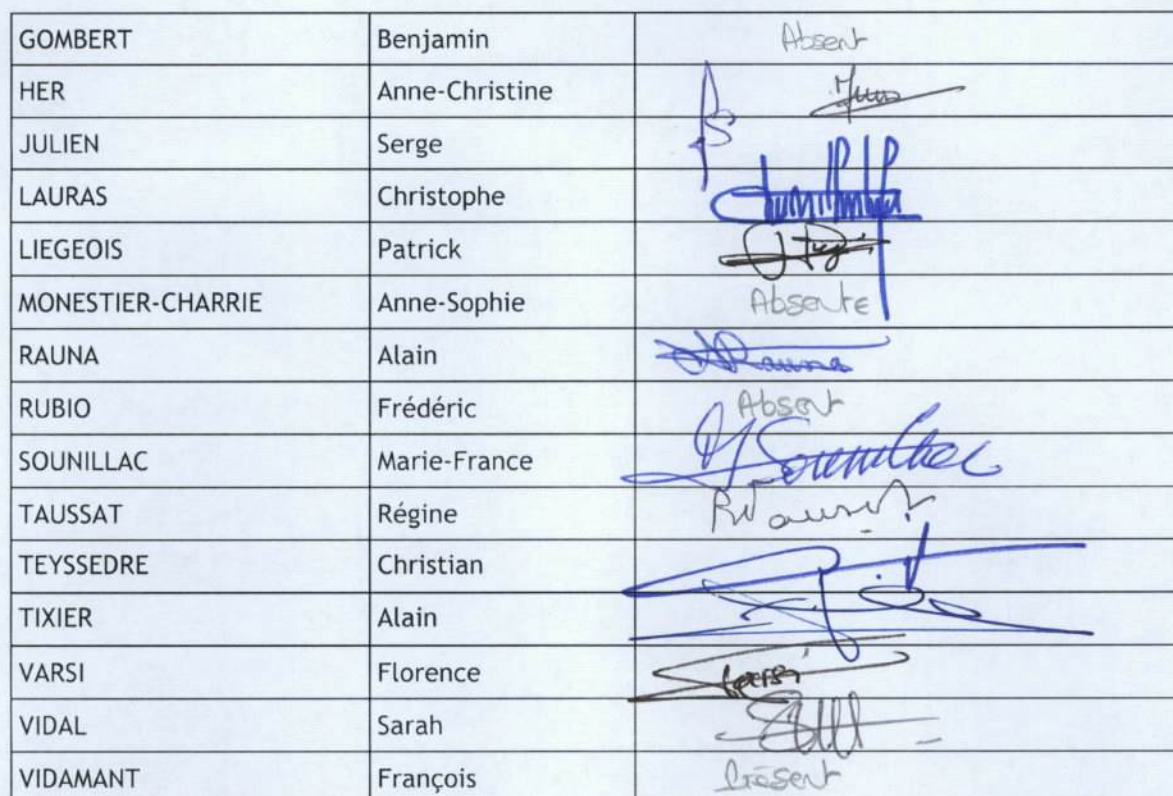 GOMBERT Benjamin Absent
HER Anne-Christine
JULIEN Serge
LAURAS Christophe
LIEGEOIS Patrick
MONESTIER-CHARRIE Anne-Sophie Absente
RAUNA Alain Rauna
RUBIO Frédéric Absent
SOUNILLAC Marie-France Sounillac
TAUSSAT Régine
TEYSSEDRE Christian
TIXIER Alain
VARSI Florence
VIDAL Sarah
VIDAMANT François Présent